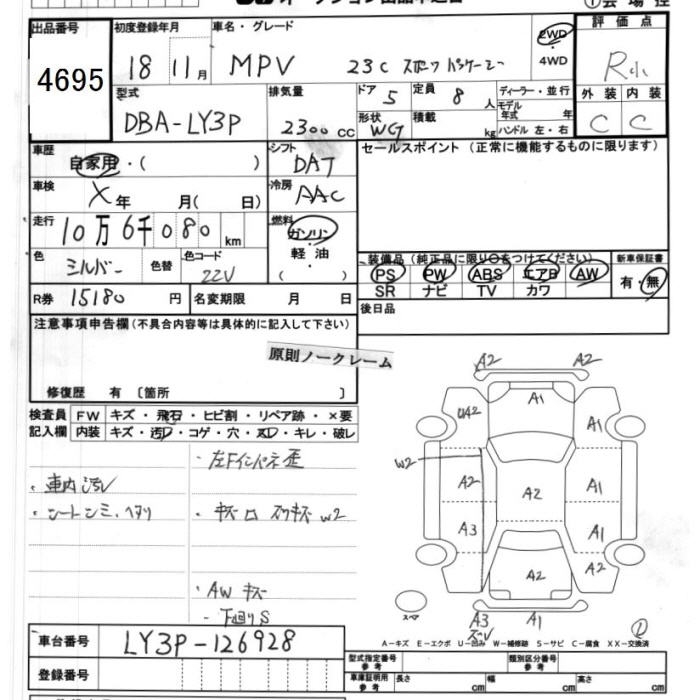 出品番号 初度登録年月 車名・グレード 評価点
4695 18 11月 MPV 23C スポーツパッケージ 2WD・4WD R小
型式 排気量 ドア 5 定員 8人 ディーラー・並行 外装 内装
DBA-LY3P 2300cc 形状 WG 積載 kg モデル年式 年 ハンドル 左・右 C C
車歴 自家用・( ) シフト DAT セールスポイント (正常に機能するものに限ります)
車検 X年 月( 日) 冷房 AAC
走行 10万6千080km 燃料 ガソリン・軽油・( )
色 シルバー 色替 色コード 22V 装備品(純正品に限り○をつけてください) 新車保証書
PS PW ABS エアB AW 有・無
SR ナビ TV カワ
R券 15180円 名変期限 月 日 後日品
注意事項申告欄(不具合内容等は具体的に記入して下さい)
原則ノークレーム
修復歴 有〔箇所 〕
検査員 FW キズ・飛石・ヒビ割・リペア跡・×要
記入欄 内装 キズ・汚れ・コゲ・穴・スレ・キレ・破レ
・左Fインパネ歪
・車内汚レ
・シートシミ、ヘタリ ・キズ 凹 スリキズ W2
・AW キズ
・下回りS
A2 A2
A1
UA2 A1
W2
A2 A2 A1
A3 A1
A2 A2
スペア A3 A1
A-キズ E-エクボ U-凹み W-補修跡 S-サビ C-腐食 XX-交換済
車台番号 LY3P-126928
登録番号
型式指定番号 参考 類別区分番号 参考
車庫証明用 参考 長さ cm 幅 cm 高さ cm